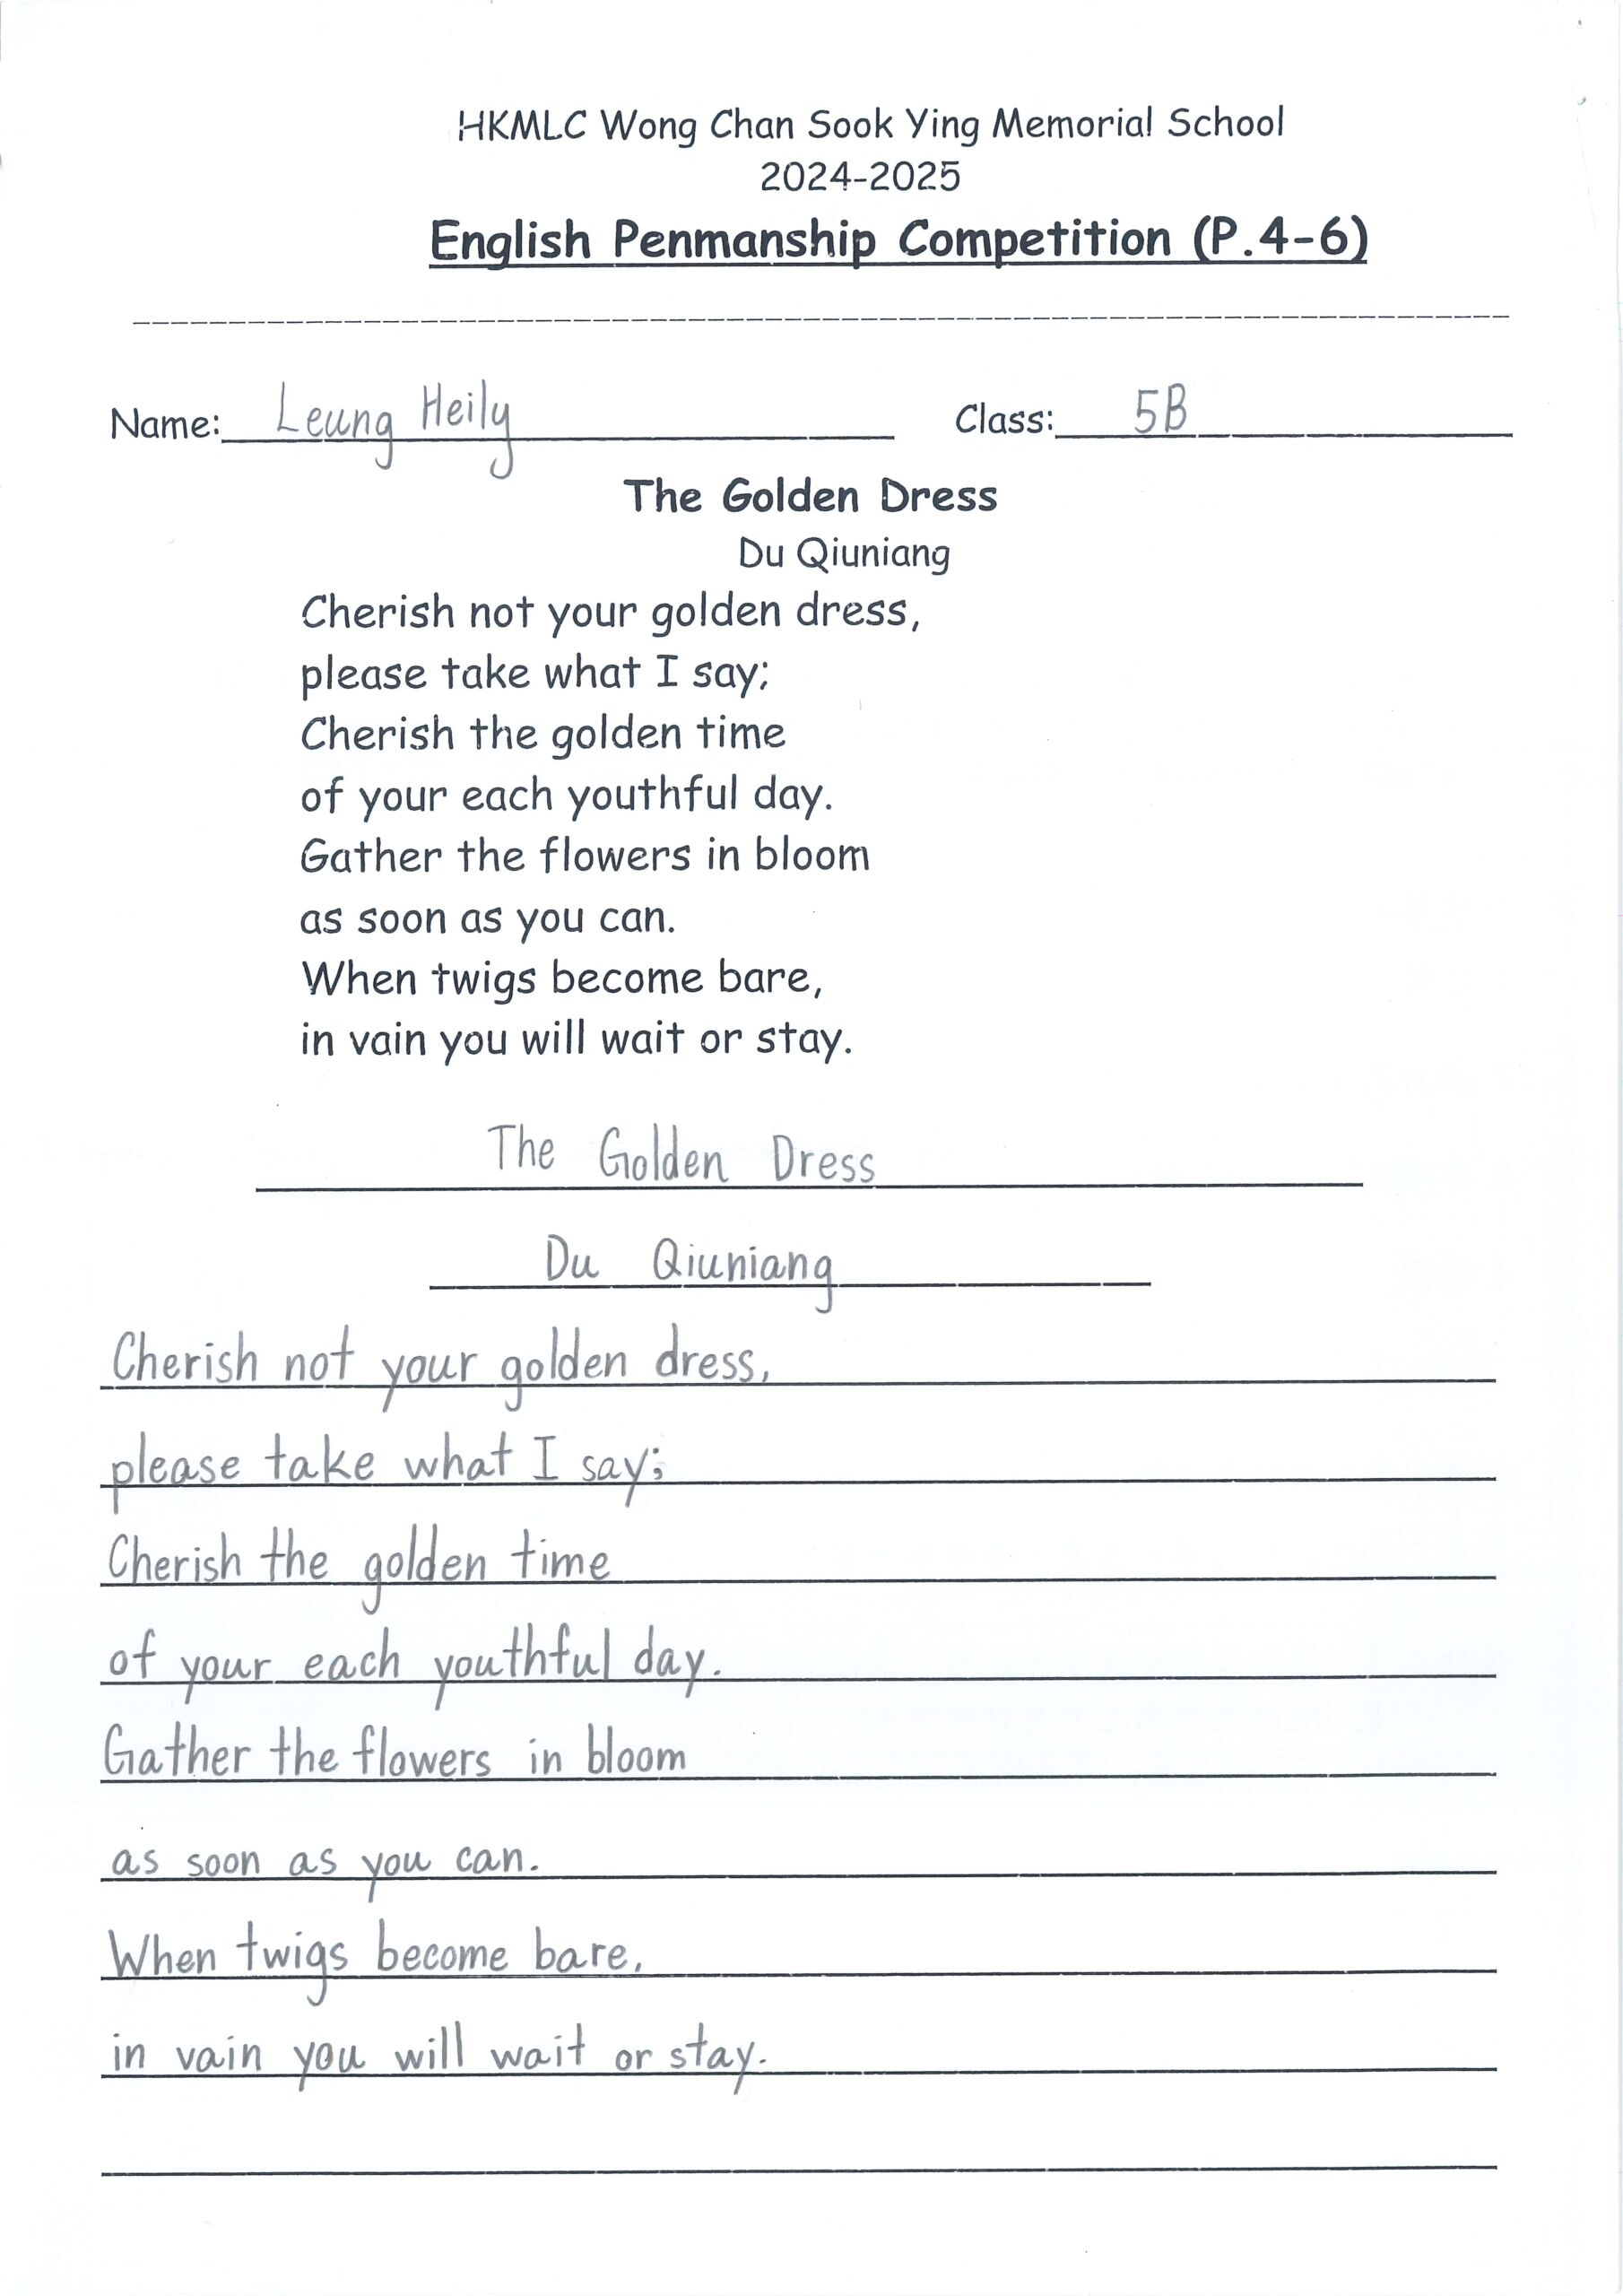 HKMLC Wong Chan Sook Ying Memorial School
2024-2025
English Penmanship Competition (P.4-6)
Name: Leung Heily Class: 5B
The Golden Dress
Du Qiuniang
Cherish not your golden dress,
please take what I say;
Cherish the golden time
of your each youthful day.
Gather the flowers in bloom
as soon as you can.
When twigs become bare,
in vain you will wait or stay.
The Golden Dress
Du Qiuniang
Cherish not your golden dress,
please take what I say;
Cherish the golden time
of your each youthful day.
Gather the flowers in bloom
as soon as you can.
When twigs become bare,
in vain you will wait or stay.